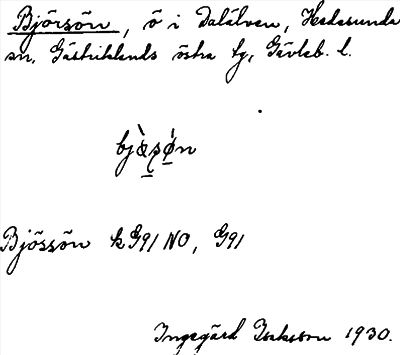 Björsön, ö i Dalälven, Hedesunda
sn, Gästriklands östra tg, Gävleb. l.
Björsön k G91 NO, G91
Ingegärd Isaksson 1930.